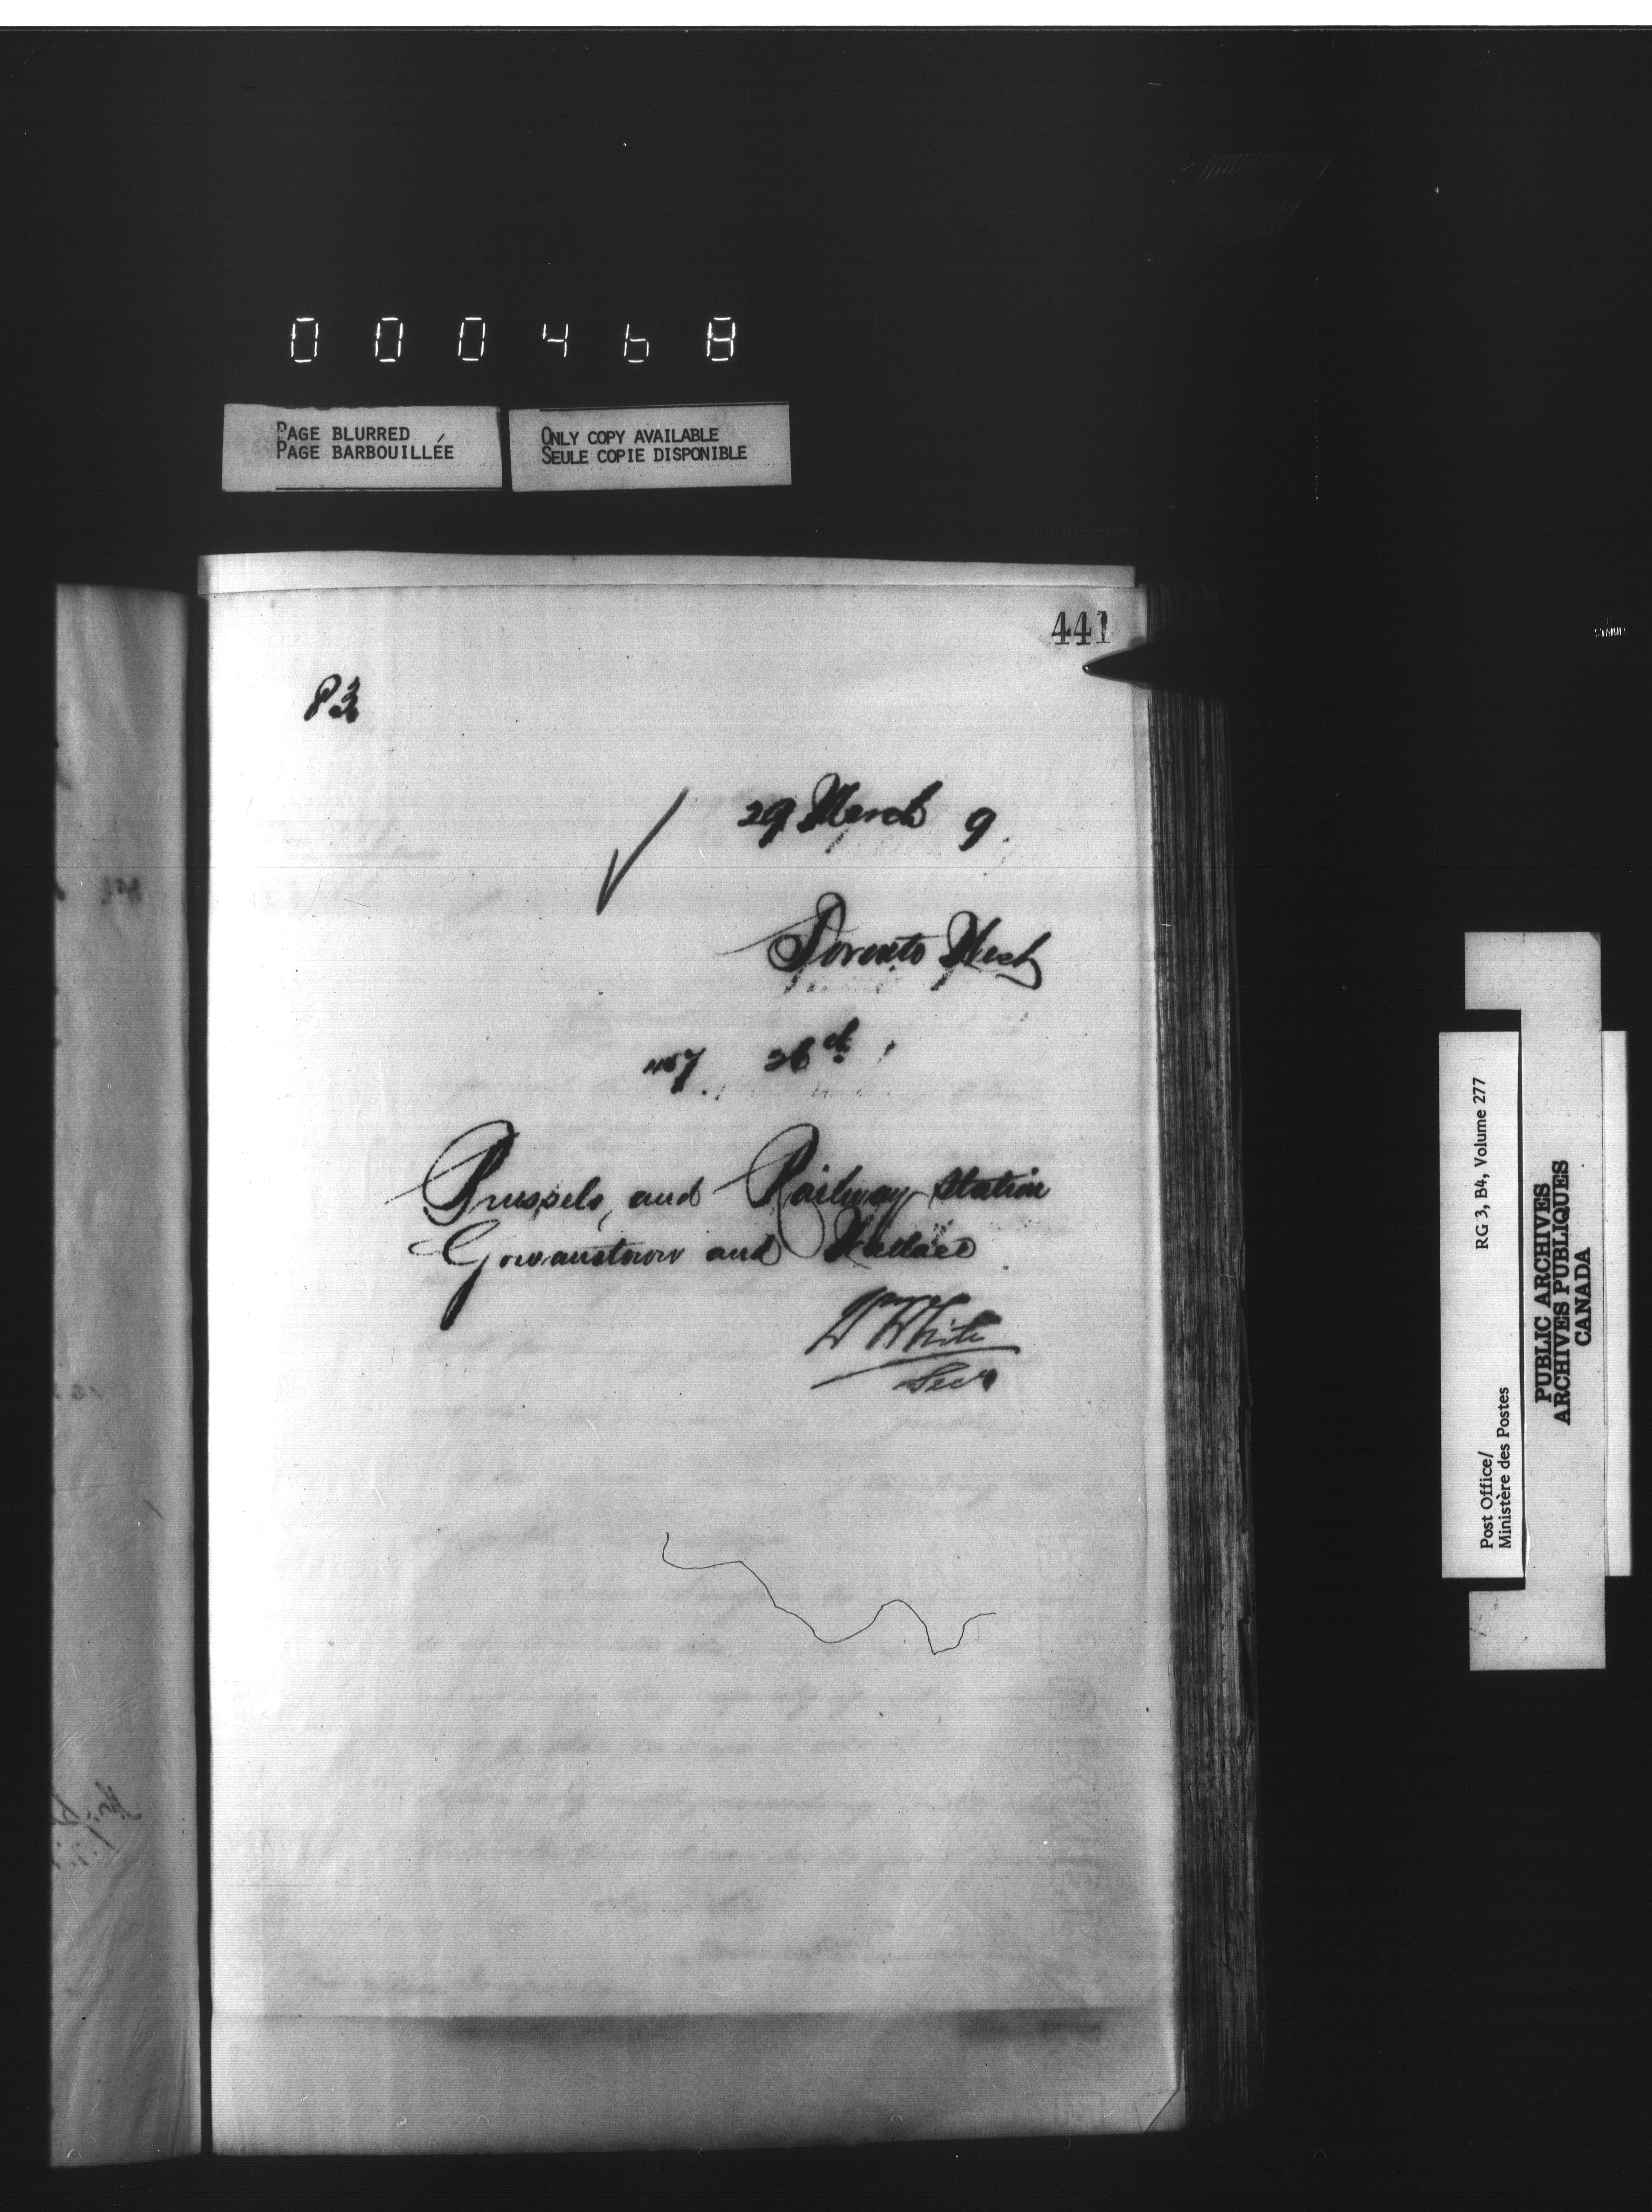 000468
PAGE BLURRED
PAGE BARBOUILLÉE
ONLY COPY AVAILABLE
SEULE COPIE DISPONIBLE
441
29 March 9.
Toronto West
26th
Brussels, and Railway Station
Gowanstown and Wallace
W White
Secy
RG 3, B4, Volume 277
Post Office/
Ministère des Postes
PUBLIC ARCHIVES
ARCHIVES PUBLIQUES
CANADA